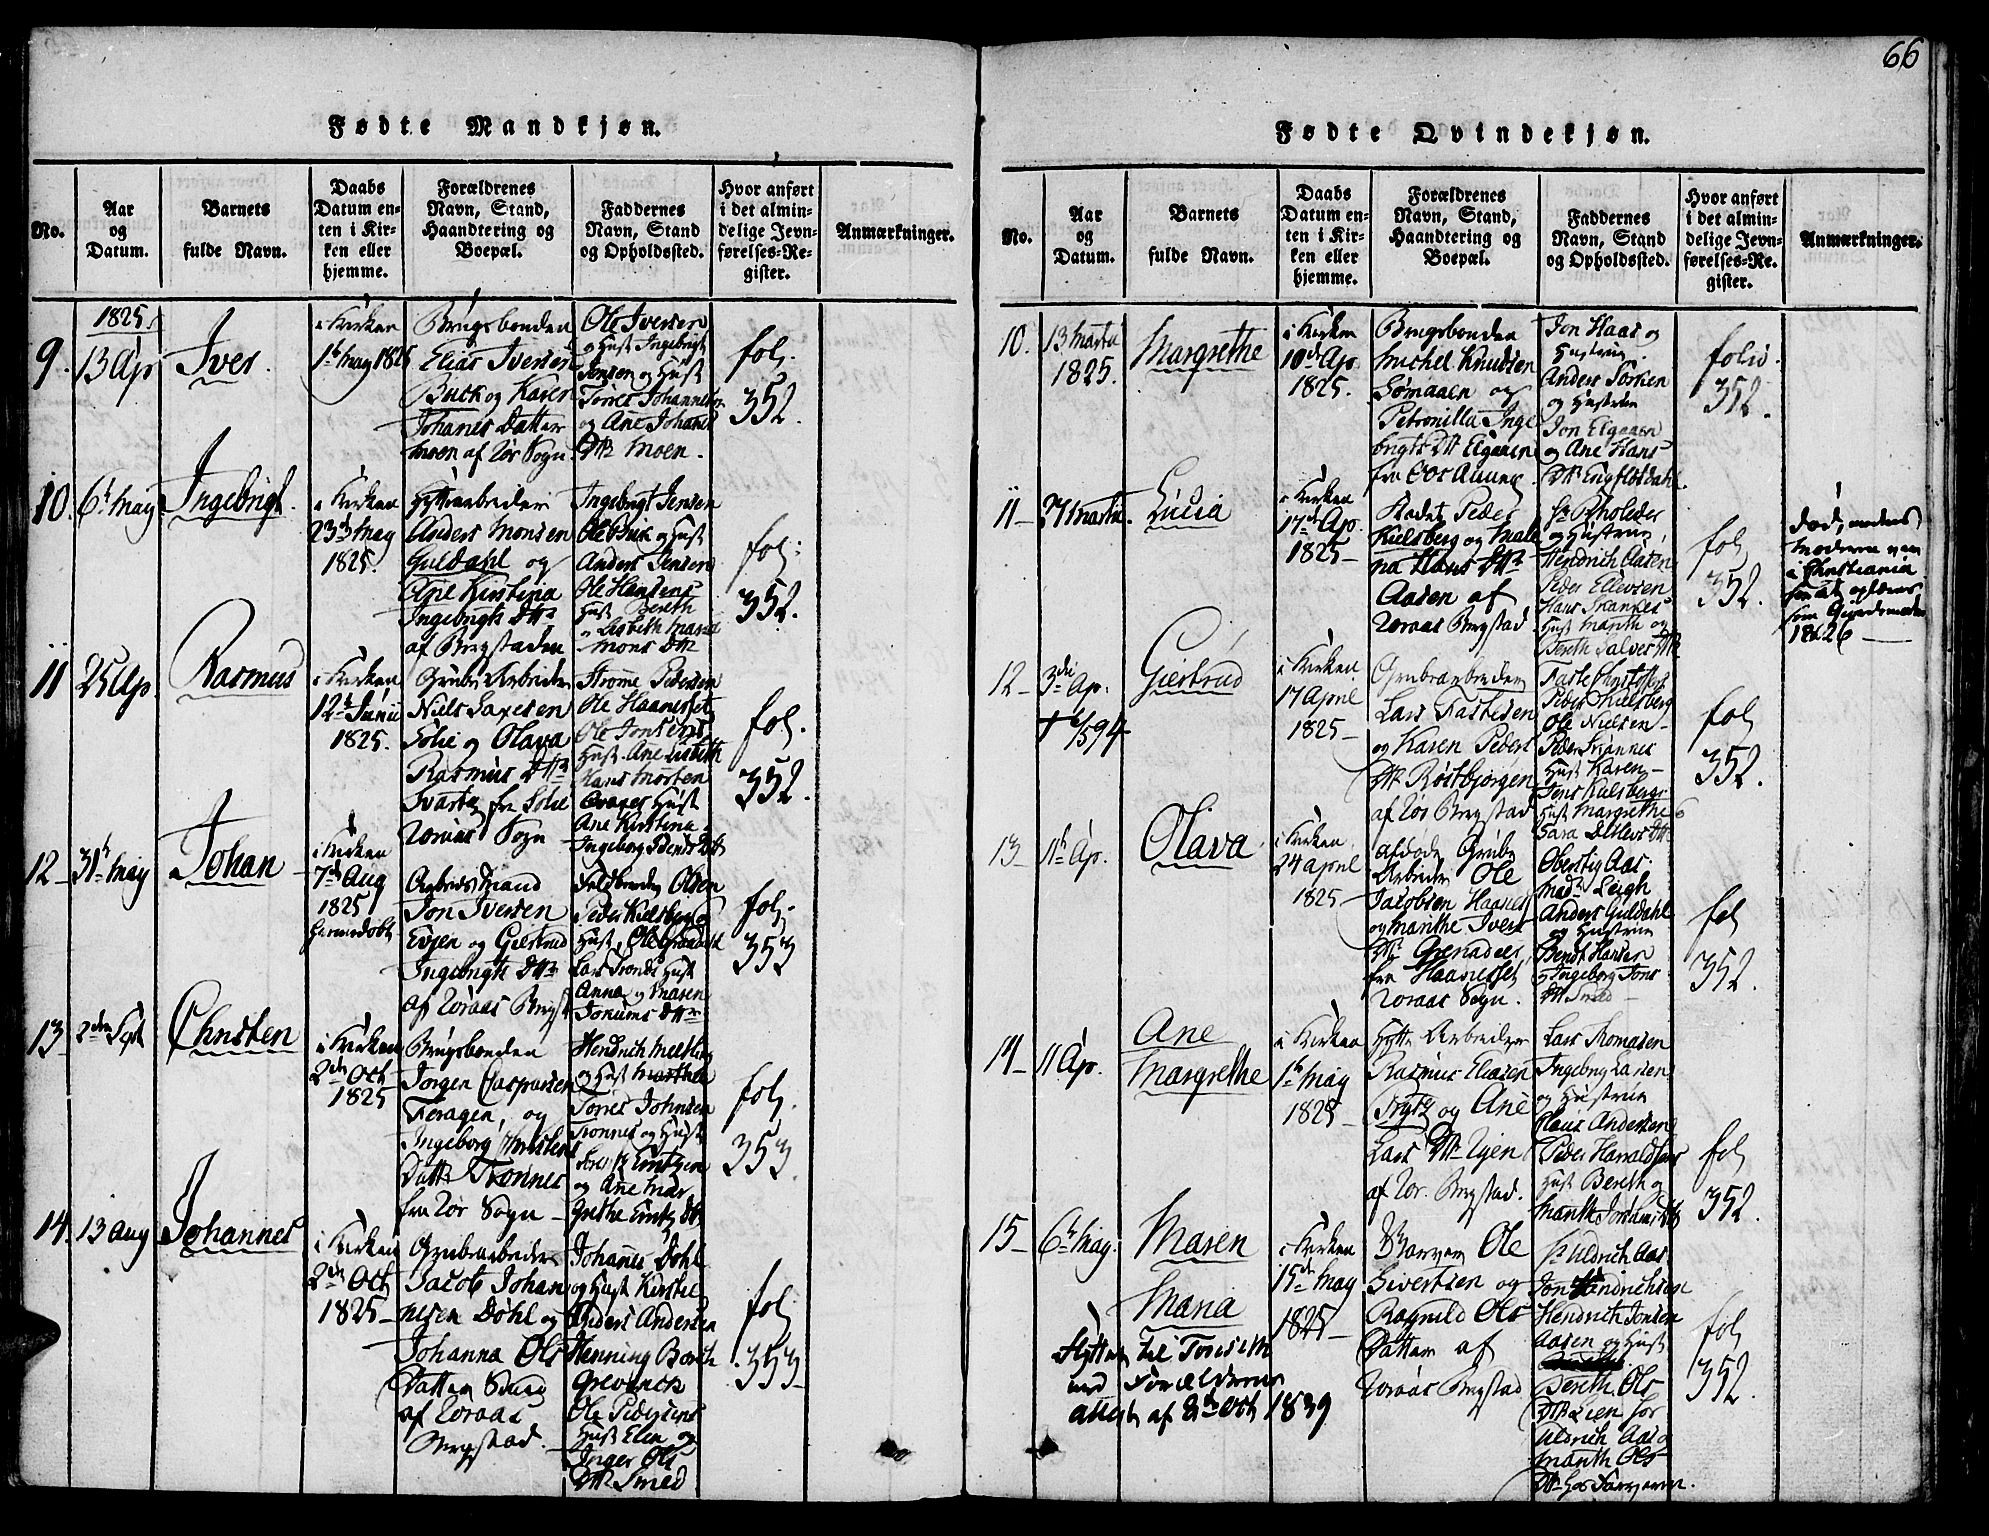 66
Fødte Mandkjøn.
No.
Aar
og
Datum.
Barnets
fulde Navn.
Daabs
Datum en-
ten i Kir-
ken eller
hjemme.
Forældrenes
Navn, Stand,
Haandtering og
Boepæl.
Faddernes
Navn, Stand
og Opholdssted.
Hvor anført
i det almin-
delige Jevn-
førelses-Re-
gister.
Anmærkninger.
1825
9.
13 Ap
Iver.
i Kirken
1te May 1825
Brugsbonden
Elias Iversen
Buck og Karen
Johanes Datter
Moen af Rør Sogn
Ole Iversen
og Hust Ingebrigt
Jensen og Hust
Torres Johannesen
og Ane Johanes
Dttr Moen.
fol.
352.
10.
6te May
Ingebrigt.
i Kirken
23de May
1825.
Hyttearbeider
Anders Monsen
Guldahl og
Ane Kirstina
Ingebrigts Dttr
af Bergstaden
Ingebrigt Jensen
Ole Buk og Hust
Anders Jensen
Ole Hansens
Hust Bereth
Lisbeth Maria
Mons Dttr
fol:
352.
11
25 Ap.
Rasmus
i Kirken
12te Junii
1825.
Grube Arbeider
Niels
Solie og Olava
Rasmus Dttr
fra Solie
Røraas Sogn
Pedersen
Ole Haaneset
Ole Jonsens
Hust Ane Lisbeth
Hans Morten
Hust
Ane Kirstina
Ingeborg
fol.
352.
12
31te May
Johan
i Kirken
7de Aug
1825
hiemedøbt
Arbeidsmand
Jon Iversen
Evjen og Giertrud
Ingebrigts Dttr
af Røraas Bergst
Olsen
Peder Kielsberg og
Hust, Ole
Lars Tronds Hust
Anna og Maren
Dttr
fol.
353
13
2den Sept
Christen
i Kirken
2den Oct
1825
Brugsbonden
Jørgen Caspersen
Feragen, og
Ingeborg Christens
Dattr Tronnes
fra Rør Sogn
Hendrich
og Hust Marthe
Torres Johnsen
Tronnes og Hust
og Ane Mar
Grethe Dttr
fol.
353.
14.
13 Aug
Johannes
i Kirken
2den Oct
1825
Grubearbeider
Jacob Johan
nesen Døhl og
Johanna Ols
Datter
af Røraas
Bergstad.
Johanes Døhl
og Hust Kirstie
Anders Andersen
Henning Borch
Grevinck
Ole Pedersens
Hust Elen og
Inger Ols
Dttr Smed
fol.
353
Fødte Qvindekjøn.
No.
Aar
og
Datum.
Barnets
fulde Navn.
Daabs
Datum en-
ten i Kir-
ken eller
hjemme.
Forældrenes
Navn, Stand,
Haandtering og
Boepæl.
Faddernes
Navn, Stand
og Opholdssted.
Hvor anført
i det almin-
delige Jevn-
førelses-Re-
gister.
Anmærkninger.
10.
13 Martii
1825.
Margrethe
i Kirken
10de Ap.
1825.
Brugsbonden
Michel Knudsen
Sømaaen og
Petronilla Inge
brigts Dttr Elgaaen
fra
Jon Haas og
Hustrue
Anders Sorken
og Hustrue
Jon Elgaaen
og Ane Hans
Dttr
folio.
352.
11
27 Martii.
Lucia
i Kirken
17de Ap.
1825
Peder
Kielsberg og Male
na Hans Dttr
Aasen af
Røraas Bergstad
og Hustrue
Hendrich Aasen
Peder Ellevsen
Hans
Hust Marith og
Bereth Dttr
fol
352.
Død, medens
Moderen var
i Christiania
for at oplæres
som Giordemoder
1826
12
3die Ap.
† 6/5 94
Giertrud
i Kirken
17 April
1825
Grubearbeider
Lars Fastesen
og Karen Peders
Dttr Røstbjørgen
af Rør Bergstad
Faste Christophers
Peder Kielsberg
Ole Nielsen
Peder
Hust Karen
Jens Kielsbergs
Hust Margrethe
Sara Ditlevs Dttr
fol
352.
13
11te Ap.
Olava
i Kirken
24 April
1825
afdøde Grube
Arbeider Ole
Jacobsen Haanes
og Marithe Ivers
Dttr Grenadeer
fra Haaneset
Røraas Sogn.
Oberstig Aas
Mad: Leigh
Anders Guldahl
og Hustrue
Bendt Hansen
Ingeborg Jons
Dtt Smed
fol
352.
14
11 Ap.
Ane
Margrethe
i Kirken
1te May
1825
Hytte Arbeider
Rasmus Eliasen
Trytz og Ane
Lars Dttr Eyen
af Rør. Bergstad.
Lars Thomasen
Ingebrig Larsen
og Hustrue
Claus Andersen
Peder Haraldsens
Hust Bereth og
Marith Dtt
fol
352.
15
6te May.
Maren
Maria
i Kirken
15de May
1825
Garver Ole
Sivertsen og
Ragnild Ols
Datter af
Røraas Bergstad
Hr Uldrich Aas
Jon Hendrichsen
Hendrich Jonsen
Aasen og Hust
Bereth Ols
Dttr Lien hos
Uldrich Aas og
Marith Ols
Dttr hos Farveren.
fol
352
Flytter til Tonseth
med Forældrene
attest af 8de Oct 1839